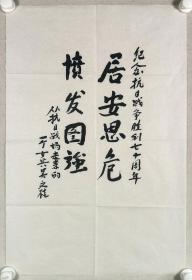 纪念抗日战争胜利七十周年
居安思危
愤发图强
从抗日战场走来的
一个士兵吴之